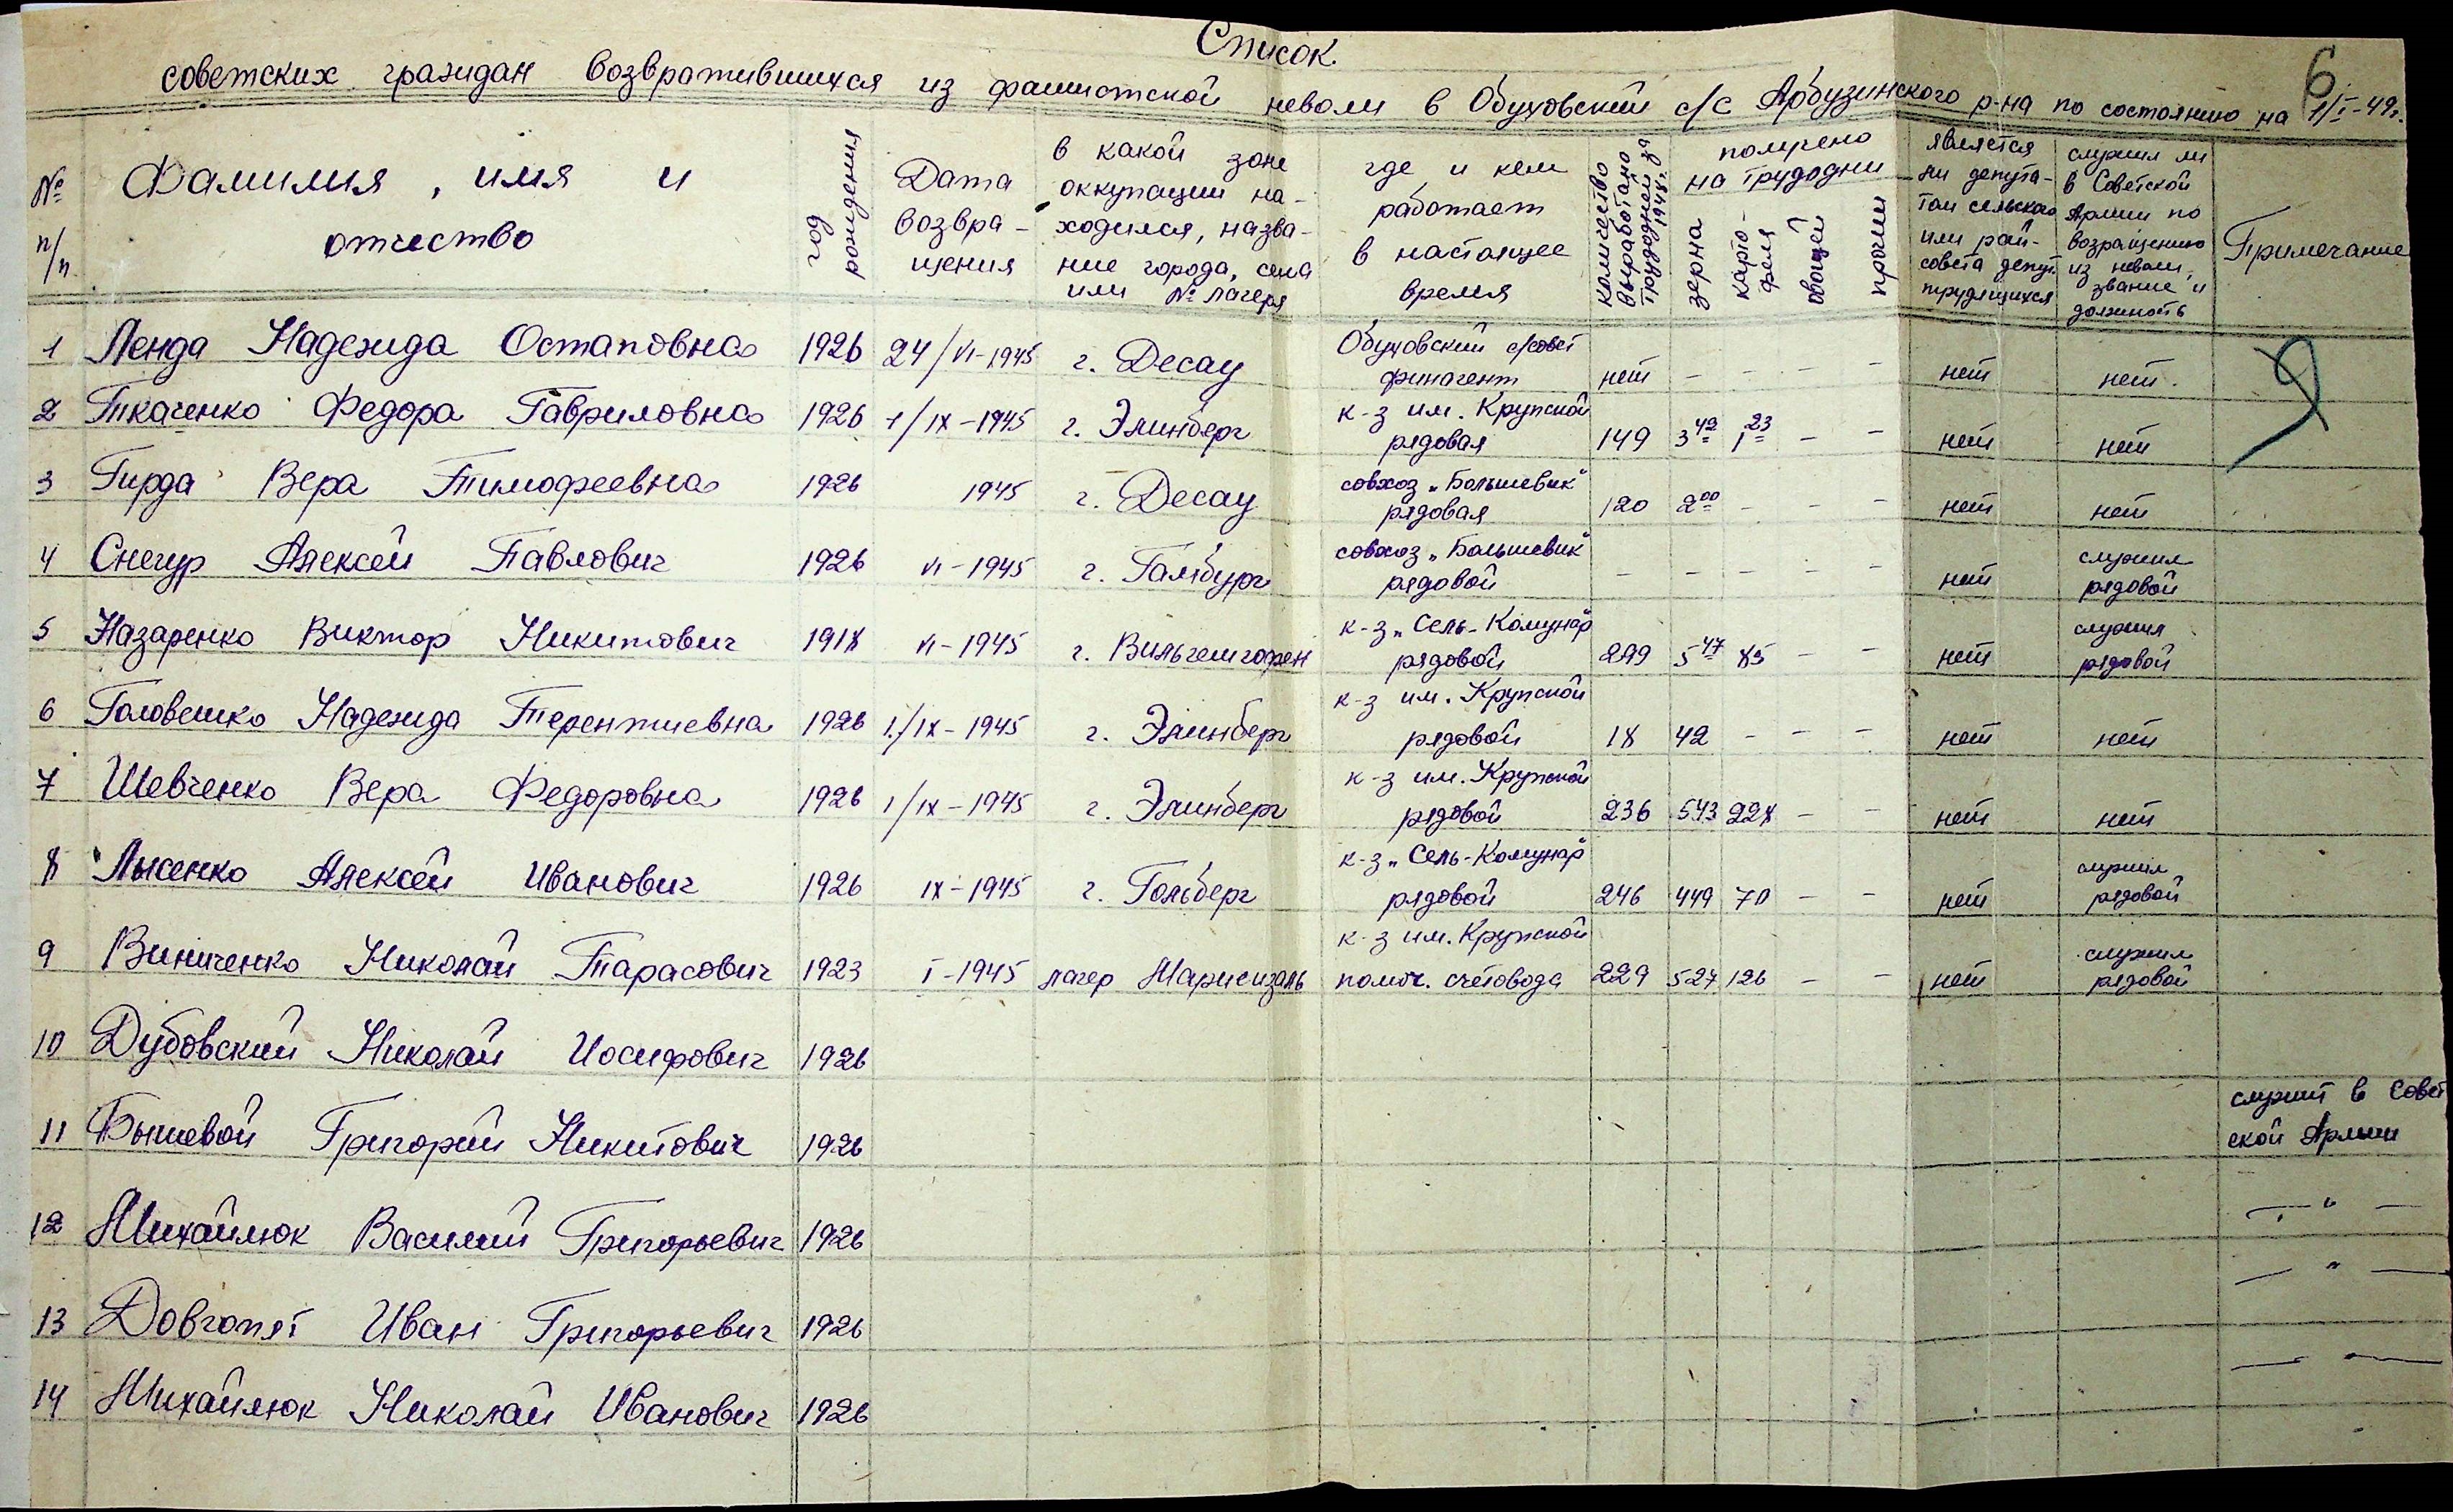 6
Список
советских граждан возвратившихся из фашистской неволи в Обуховский с/с Арбузинского р-на по состоянию на 1/I-49г.
№ п/п
Фамилия, имя и отчество
год рождения
Дата возвра-щения
в какой зоне оккупации на-ходился, назва-ние города, села или № лагеря
где и кем работает в настоящее время
количество выработано трудодней за 1948г.
получено на трудодни
зерна
карто-феля
овощей
прочии
является ли депута-том сельского или рай-совета депут. трудящихся
служил ли в Советской Армии по возращению из неволи, звание и должность
Примечание
1 Ленда Надежида Остаповна 1926 24/VI-1945 г. Десау Обуховский с/совет финагент нет - - - - нет нет.
2 Ткаченко Федора Гавриловна 1926 1/IX-1945 г. Элинберг к-з им. Крупской рядовая 149 3 42 1 23 - - нет нет
3 Гирда Вера Тимофеевна 1926 1945 г. Десау совхоз „Большевик" рядовая 120 2 00 - - - нет нет
4 Снегур Алексей Павлович 1926 VI-1945 г. Гамбург совхоз „Большевик" рядовой - - - - - нет служил рядовой
5 Назаренко Виктор Никитович 1918 VI-1945 г. Вильгемгофен к-з „Сель-Комунар" рядовой 299 5 47 85 - - нет служил рядовой
6 Головешко Надежида Терентиевна 1926 1/IX-1945 г. Элинберг к-з им. Крупской рядовой 18 42 - - - нет нет
7 Шевченко Вера Федоровна 1926 1/IX-1945 г. Элинберг к-з им. Крупской рядовой 236 543 228 - - нет нет
8 Лысенко Алексей Иванович 1926 IX-1945 г. Гольберг к-з „Сель-Комунар" рядовой 246 449 70 - - нет служил рядовой
9 Виниченко Николай Тарасович 1923 I-1945 лагер к-з им. Крупской помоч. счетовода 229 527 126 - - нет служил рядовой
10 Дубовский Николай Иосифович 1926
11 Бышевой Григорий Никитович 1926 служит в Совет ской Армии
12 Михайлюк Василий Григорьевич 1926 — " —
13 Довгопят Иван Григорьевич 1926 — " —
14 Михайлюк Николай Иванович 1926 — " —